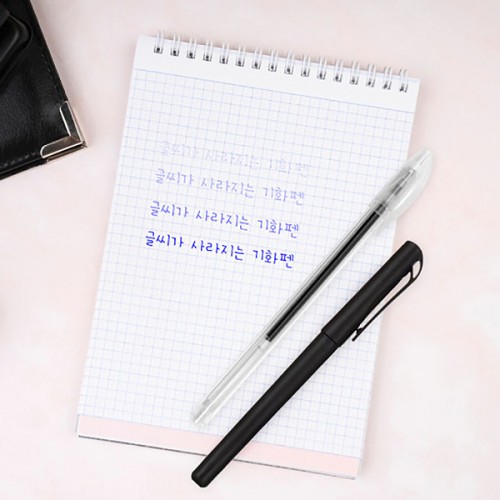 글씨가 사라지는 기화펜
글씨가 사라지는 기화펜
글씨가 사라지는 기화펜
글씨가 사라지는 기화펜